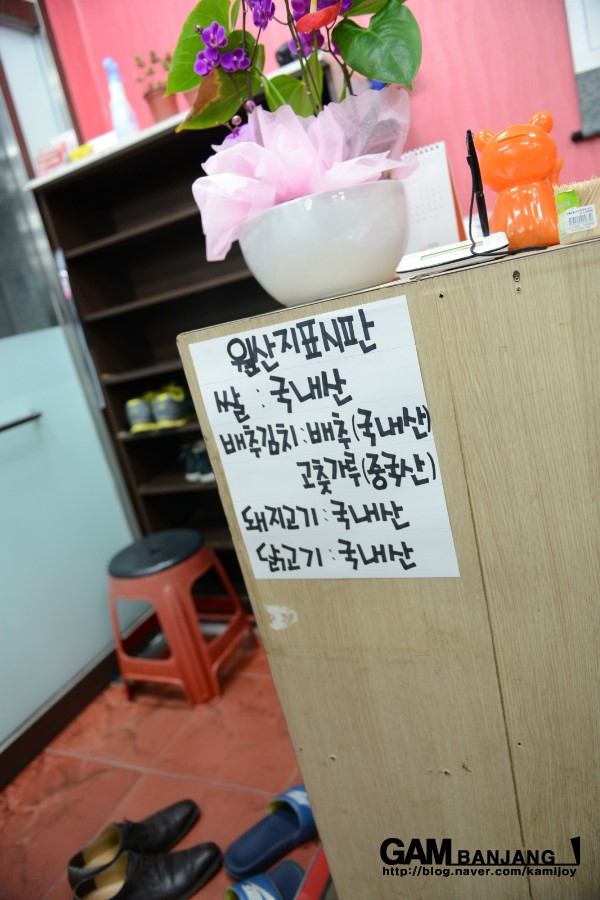 원산지표시판
쌀 : 국내산
배추김치:배추(국내산)
고춧가루(중국산)
돼지고기:국내산
닭고기:국내산
GAM BANJANG!
http://blog.naver.com/kamijoy